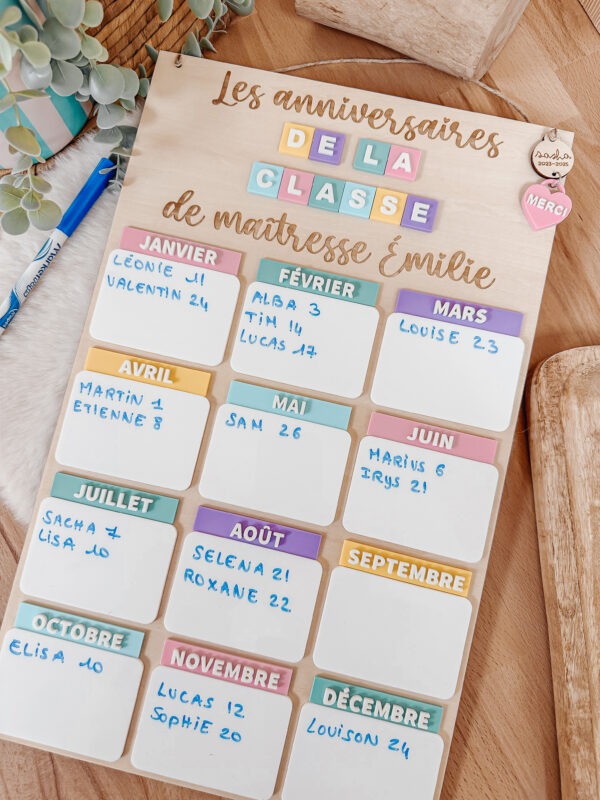 Les anniversaires
DE LA
CLASSE
de maîtresse Émilie
sasha
2023-2025
MERCI
JANVIER
LÉONIE 11
VALENTIN 24
FÉVRIER
ALBA 3
TIM 14
LUCAS 17
MARS
LOUISE 23
AVRIL
MARTIN 1
ETIENNE 8
MAI
SAM 26
JUIN
MARIUS 6
IRYS 21
JUILLET
SACHA 7
LISA 10
AOÛT
SELENA 21
ROXANE 22
SEPTEMBRE
OCTOBRE
ELISA 10
NOVEMBRE
LUCAS 12
SOPHIE 20
DÉCEMBRE
LOUISON 24